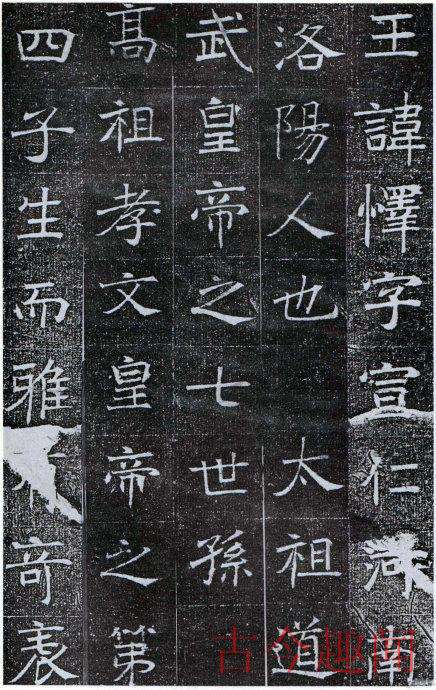 王諱懌字宣仁河南
洛陽人也　太祖道
武皇帝之七世孫
髙祖孝文皇帝之第
四子生而雅竒表
古今趣闻